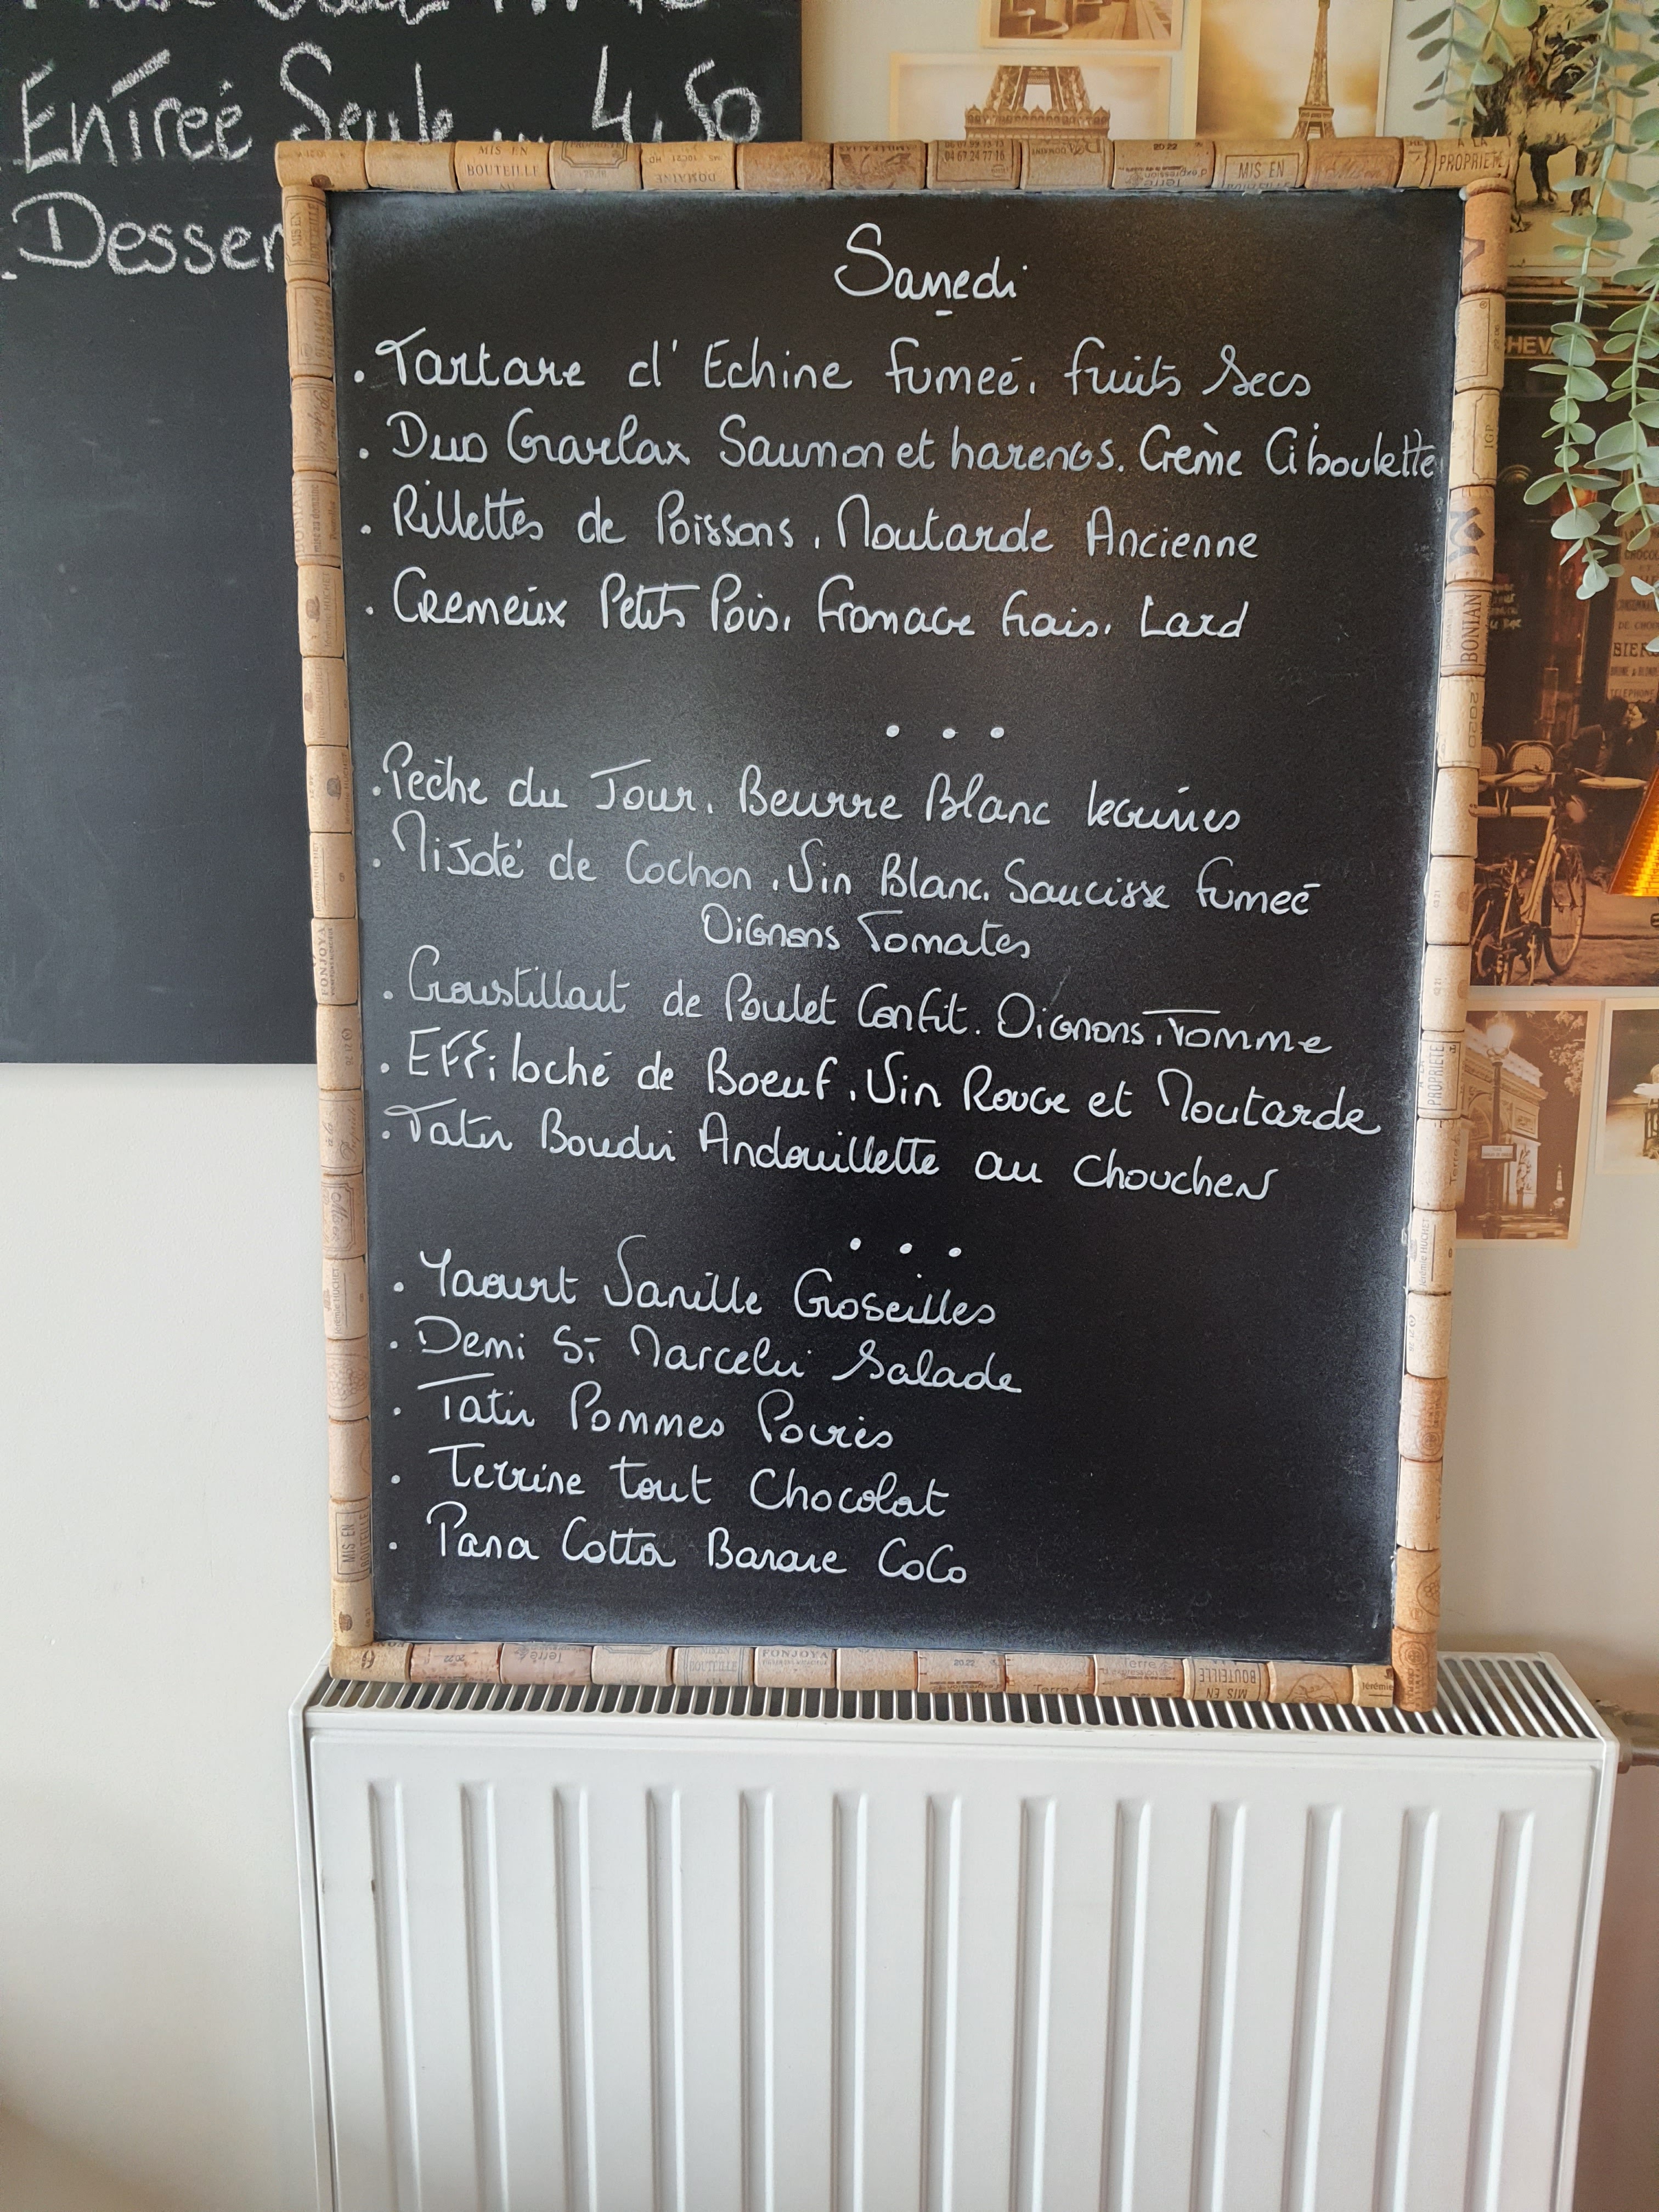 Entreé Seule ... 4,50
Desser
Samedi
. Tartare d'Echine fumeé. fruits Secs
. Duo Gravlax Saumon et harengs. Crème Ciboulette
. Rillettes de Poissons. Moutarde Ancienne
. Cremeux Petits Pois. Fromage frais. Lard
...
. Pèche du Jour. Beurre Blanc legumes
. Mijoté de Cochon. Vin Blanc. Saucisse fumeé
Oignons Tomates
. Croustillant de Poulet Confit. Oignons. Tomme
. Effiloché de Boeuf. Vin Rouge et Moutarde
. Tatin Boudin Andouillette au Chouchen
...
. Yaourt Vanille Groseilles
. Demi St Marcelin Salade
. Tatin Pommes Poires
. Terrine tout Chocolat
. Pana Cotta Banane CoCo
MIS EN
BOUTEILLE
04 67 24 77 16
MIS EN
A LA
PROPRIETE
IGP
BONIAN
2020
PROPRIETE
FONJOYA
MIS EN
BOUTEILLE
FONJOYA
20.22
Terre
MIS EN
BOUTEILLE
Jérémie
CHEVA
BIER